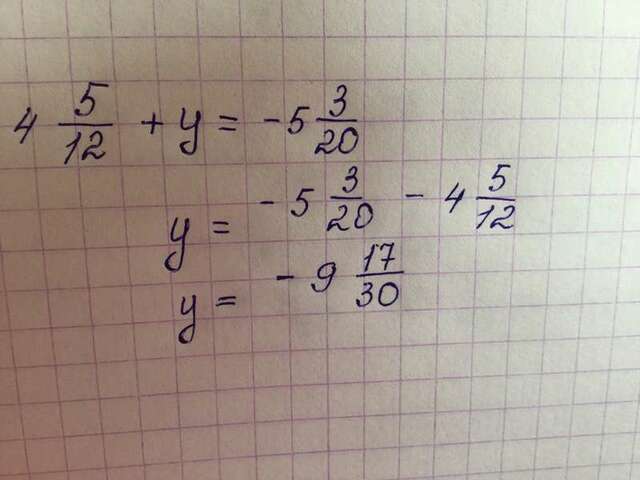 4 5/12 + y = -5 3/20
y = -5 3/20 - 4 5/12
y = -9 17/30